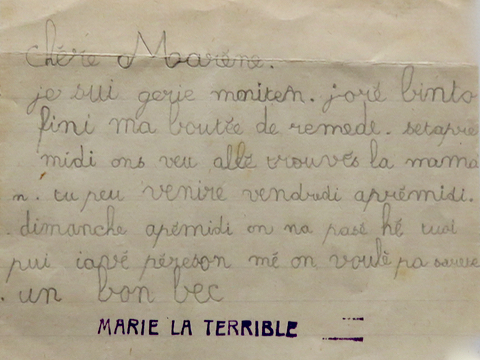 chérie Maréne.
je sui gerie moniten. joré binto
fini ma boutée de remede. setapré
midi ons veu allé trouvés la mama
n. tu peu venire vendredi aprémidi.
dimanche apémidi on na pasé hé toi
pui iavé péreson mé on voulé pa
un bon bec
MARIE LA TERRIBLE